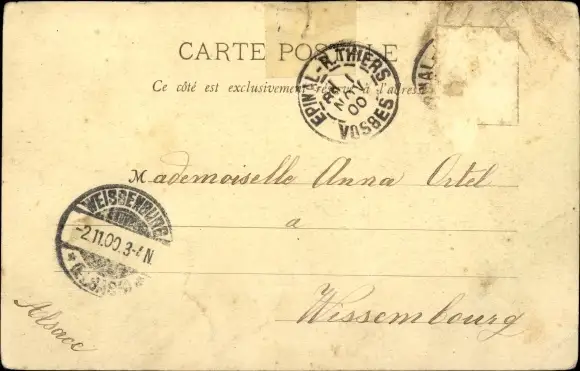 CARTE POSTALE
Ce côté est exclusivement réservé à l'adresse
EPINAL-R.THIERS
1
NOV
00
VOSGES
EPINAL-
Mademoiselle Anna Ortel
a
Wissembourg
Alsace
WEISSENBURG
-2.11.00.3-4N.